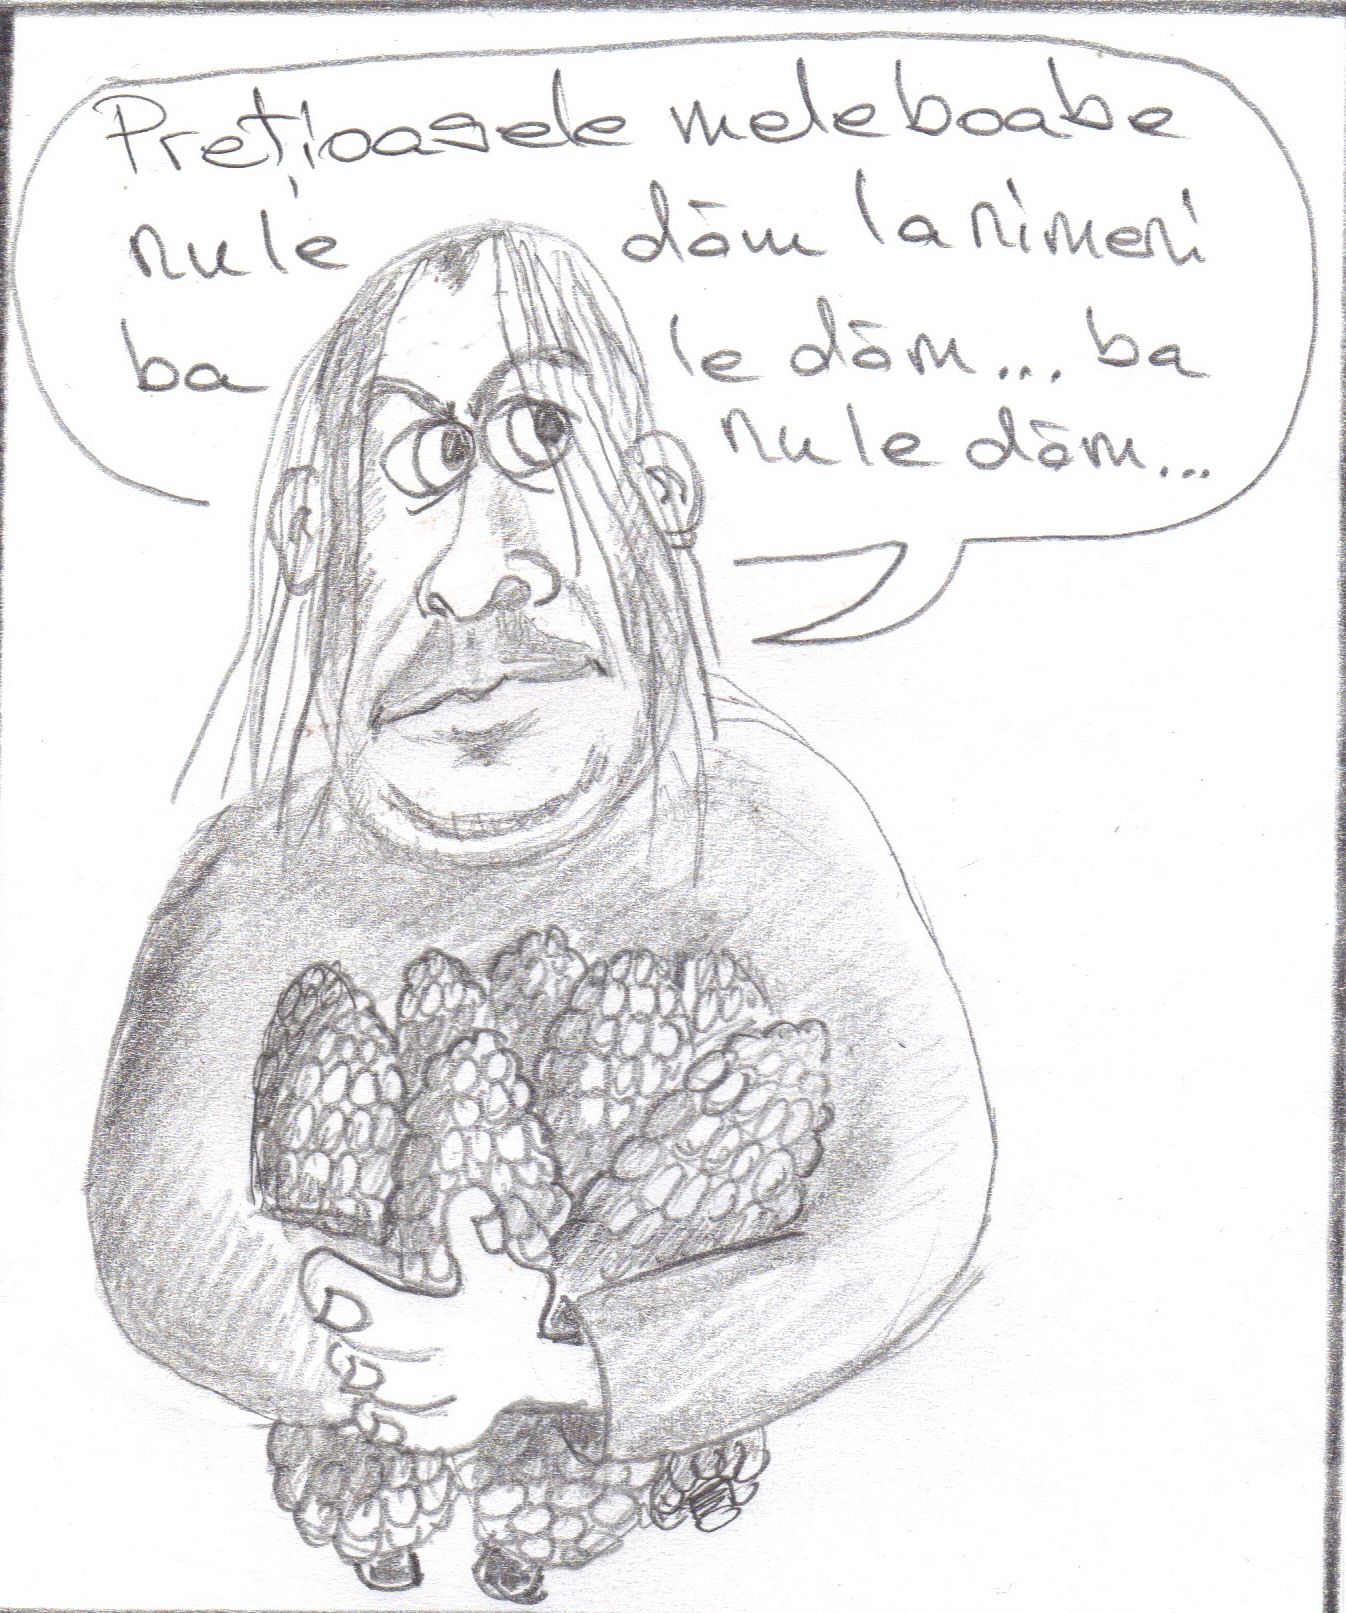 Prețioasele mele boabe
nu le dăm la nimeni
ba le dăm... ba
nu le dăm...